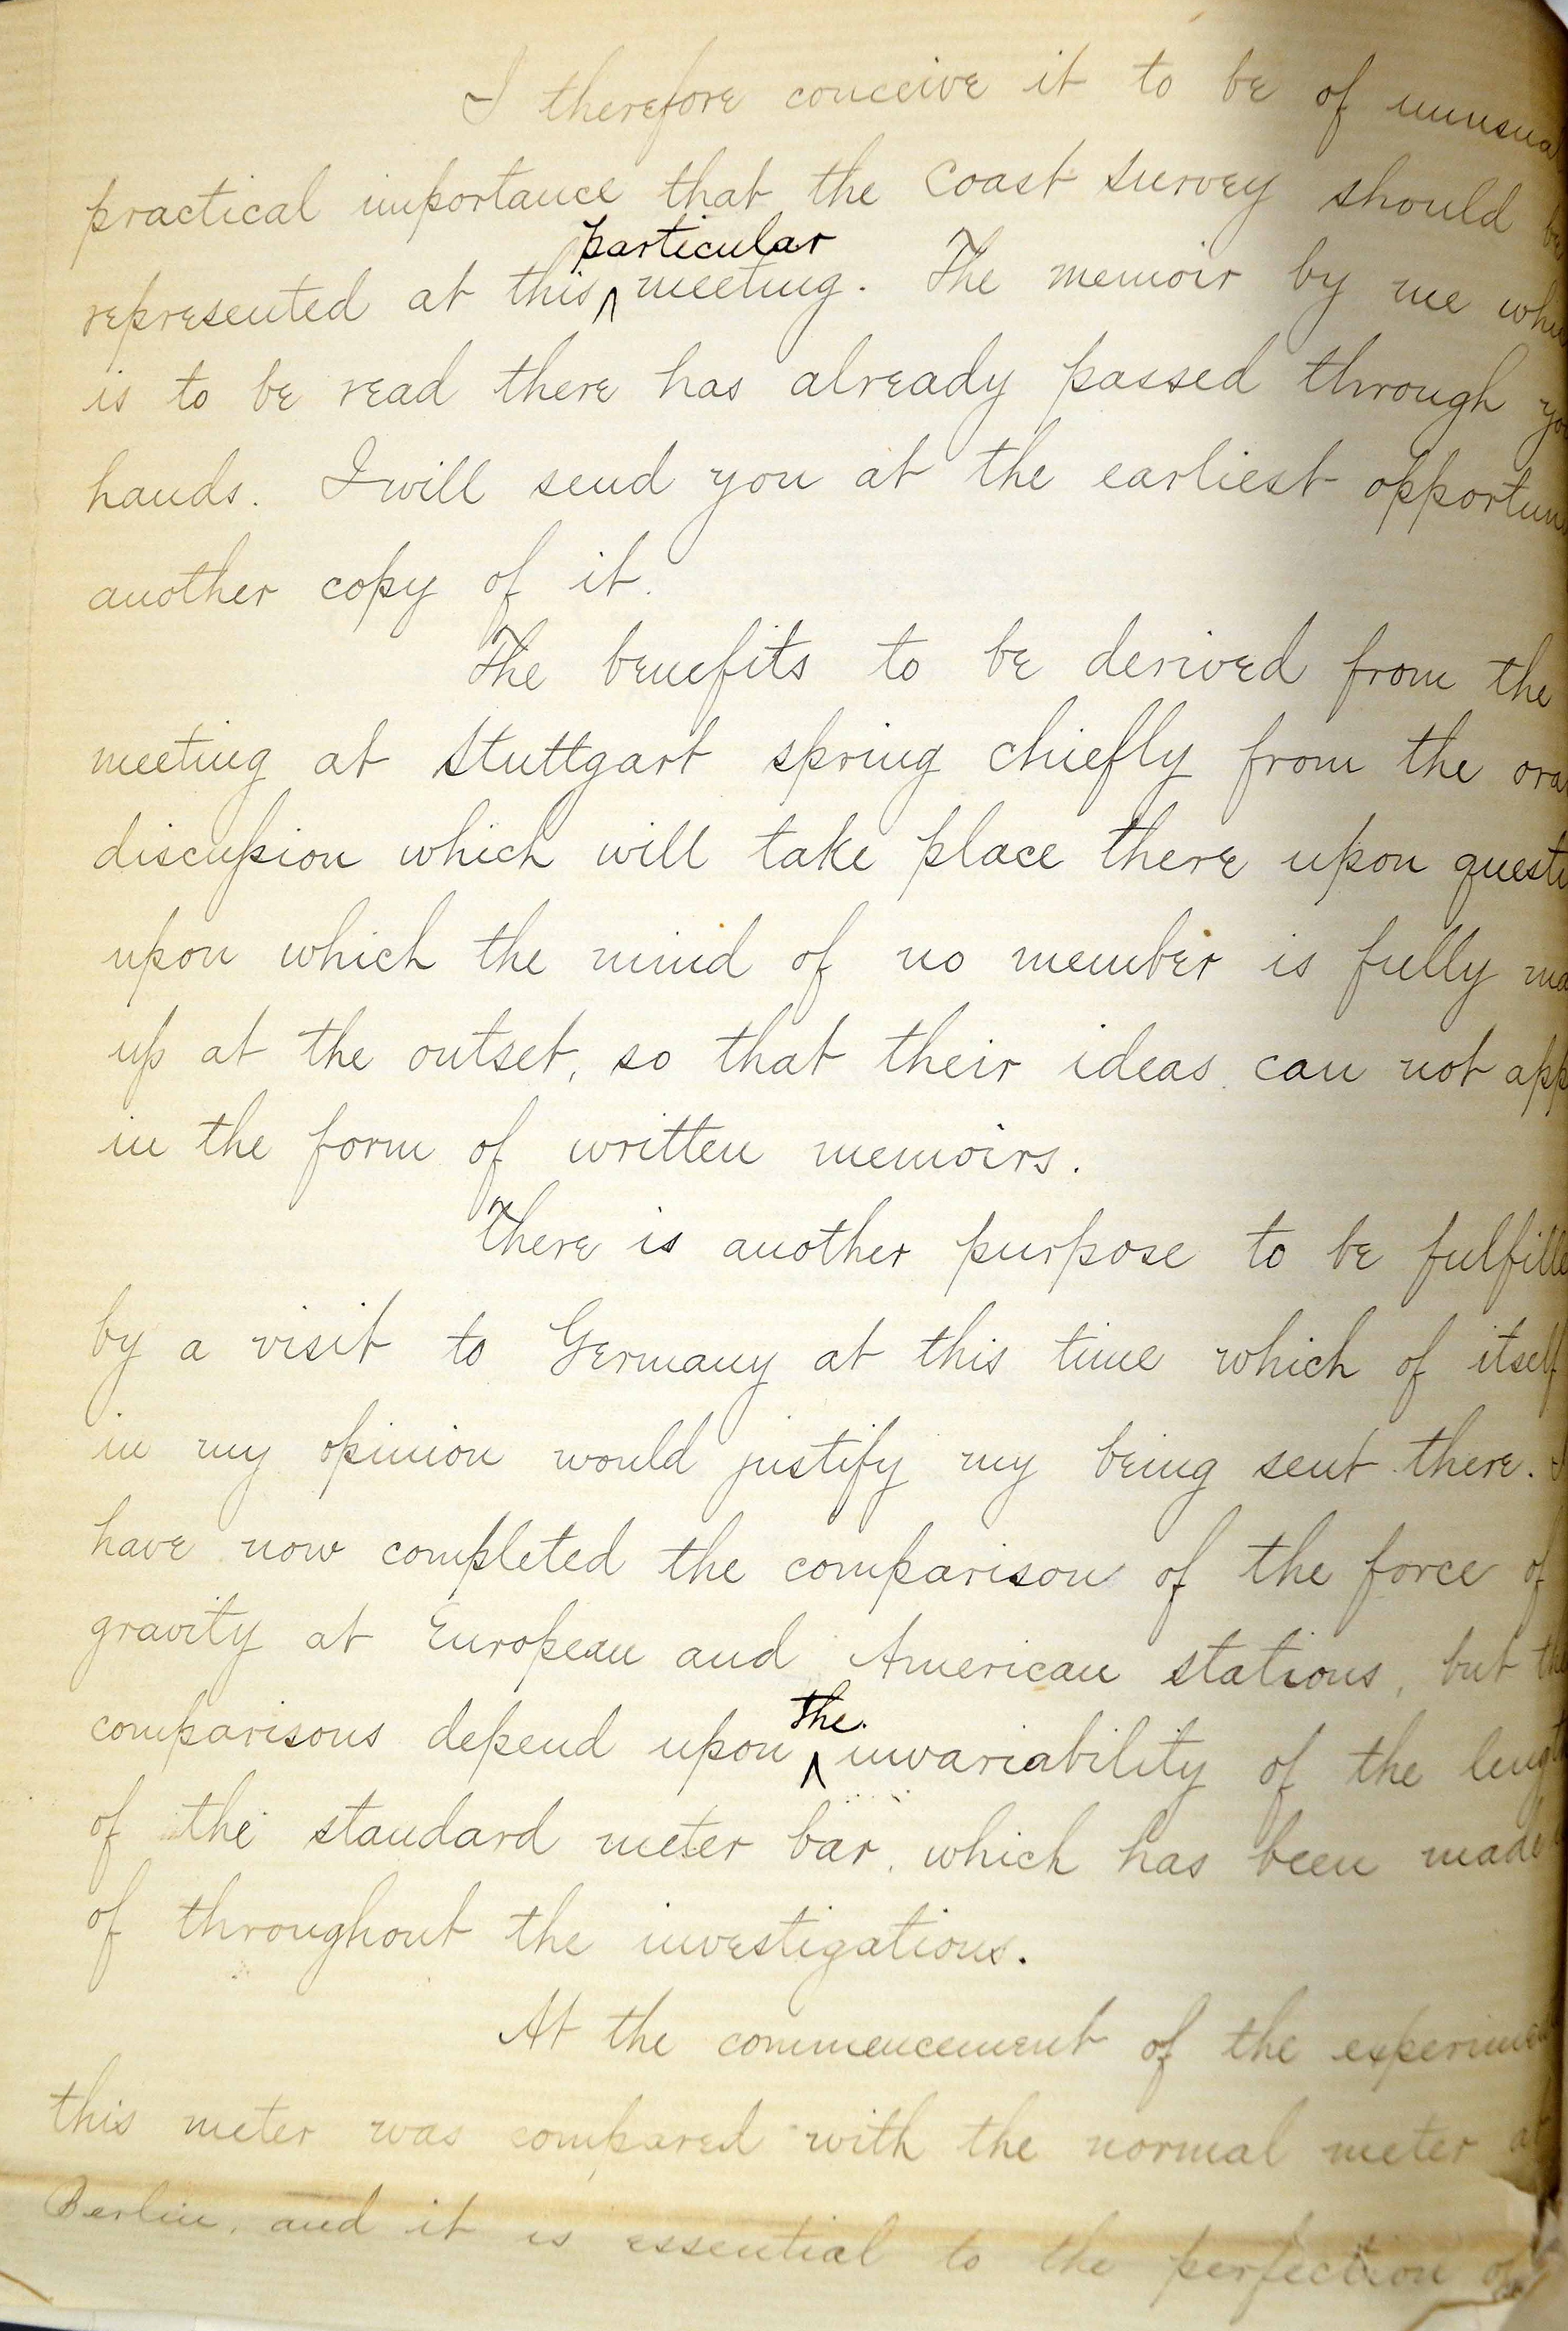 I therefore conceive it to be of unusua
practical importance that the Coast Survey should be
particular
represented at this ^ meeting. The memoir by me whi
is to be read there has already passed through yo
hands. I will send you at the earliest opportun
another copy of it.
The benefits to be derived from the
meeting at Stuttgart spring chiefly from the ora
discussion which will take place there upon questi
upon which the mind of no member is fully ma
up at the outset, so that their ideas can not app
in the form of written memoirs.
There is another purpose to be fulfille
by a visit to Germany at this time which of itself
in my opinion would justify my being sent there. I
have now completed the comparison of the force of
gravity at European and American stations, but the
the
comparisons depend upon ^ invariability of the lengt
of the standard meter bar, which has been made
of throughout the investigations.
At the commencement of the experimen
this meter was compared with the normal meter at
Berlin, and it is essential to the perfection of